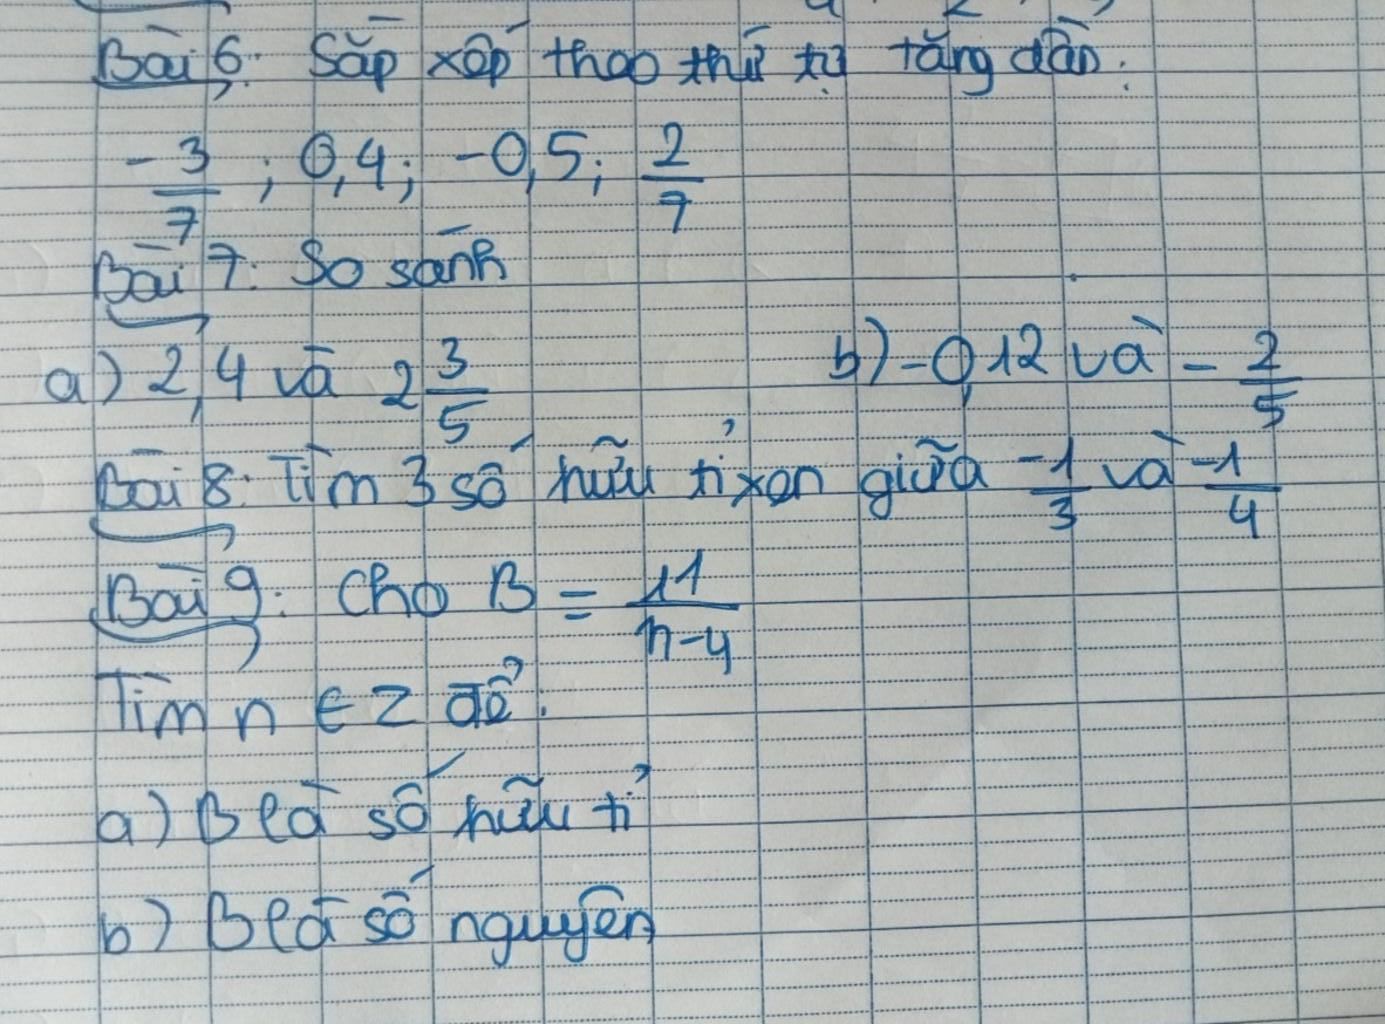 Bài 6: Sắp xếp theo thứ tự tăng dần:
-3/7 ; 0,4; -0,5; 2/7
Bài 7: So sánh
a) 2,4 và 2 3/5 b) -0,12 và -2/5
Bài 8: Tìm 3 số hữu tỉ xen giữa -1/3 và -1/4
Bài 9: Cho B = 11/(n-4)
Tìm n ∈ Z để:
a) B là số hữu tỉ
b) B là số nguyên